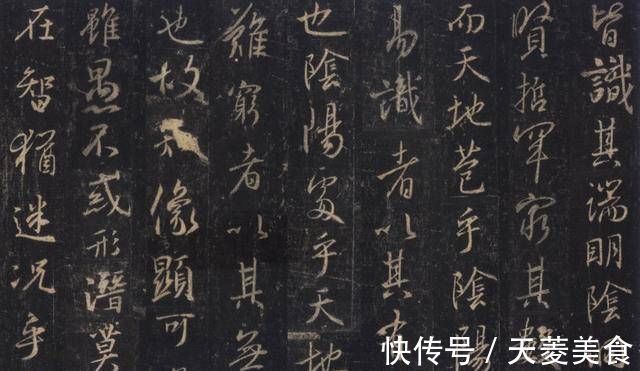 皆識其端明陰洞
賢哲罕窮其數
而天地苞乎陰陽
易識者以其有
也陰陽處乎天地
難窮者以其無
也故像顯可
雖愚不惑形潛莫
在智猶迷況乎
快传号 / 天菱美食